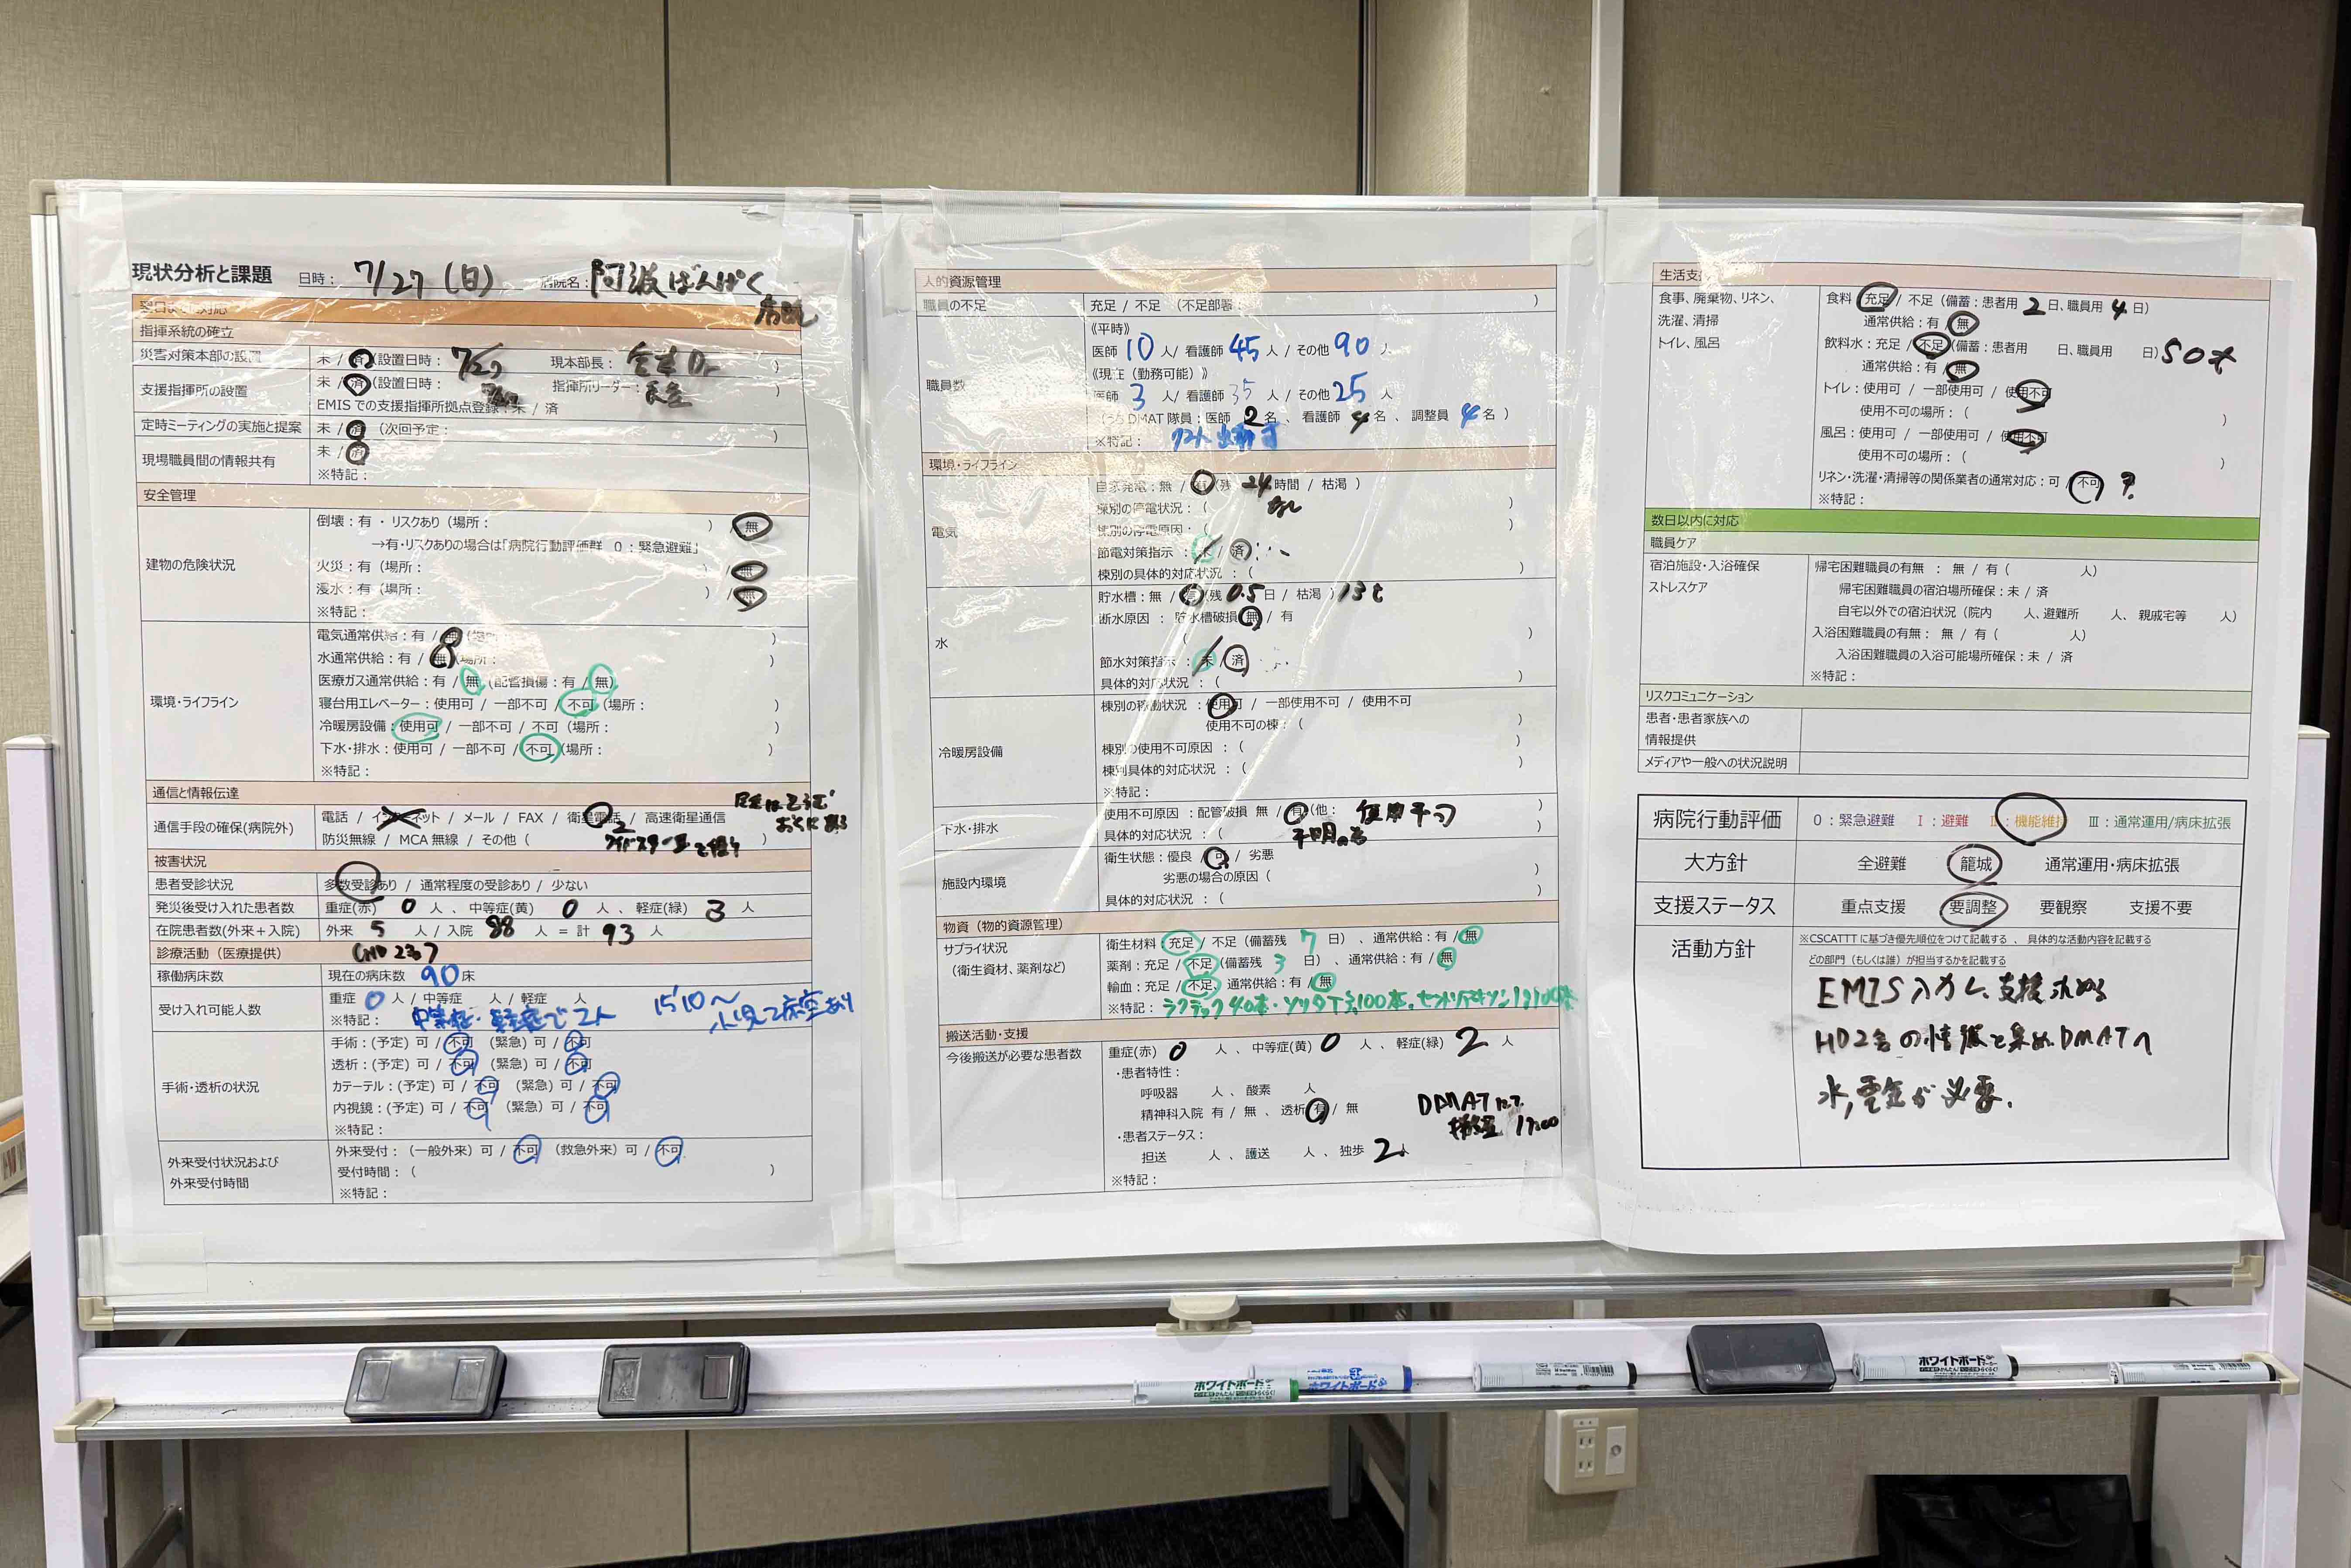 現状分析と課題 日時： 7/27（日） 病院名：阿波ばんぱく
病院
翌日までに対応
指揮系統の確立
災害対策本部の設置 未 / 済（設置日時： 7/27 現本部長： Dr ）
支援指揮所の設置 未 / 済（設置日時： 指揮所リーダー： ）
EMISでの支援指揮所拠点登録：未 / 済
定時ミーティングの実施と提案 未 / 済（次回予定： ）
現場職員間の情報共有 未 / 済
※特記：
安全管理
建物の危険状況
倒壊：有 ・ リスクあり（場所： ） / 無
→有・リスクありの場合は「病院行動評価群 0：緊急避難」
火災：有（場所： ） / 無
浸水：有（場所： ） / 無
※特記：
環境・ライフライン
電気通常供給：有 / 無（場所： ）
水通常供給：有 / 無（場所： ）
医療ガス通常供給：有 / 無（配管損傷：有 / 無）
寝台用エレベーター：使用可 / 一部不可 / 不可（場所： ）
冷暖房設備：使用可 / 一部不可 / 不可（場所： ）
下水・排水：使用可 / 一部不可 / 不可（場所： ）
※特記：
通信と情報伝達
通信手段の確保(病院外)
電話 / インターネット / メール / FAX / 衛星電話 / 高速衛星通信
防災無線 / MCA無線 / その他（ ）
被害状況
患者受診状況 多数受診あり / 通常程度の受診あり / 少ない
発災後受け入れた患者数 重症(赤) 0 人 、 中等症(黄) 0 人 、 軽症(緑) 3 人
在院患者数(外来＋入院) 外来 5 人 / 入院 88 人 ＝ 計 93 人
診療活動（医療提供）
稼働病床数 現在の病床数 90床
受け入れ可能人数 重症 0 人 / 中等症 人 / 軽症 人
※特記： 中等症・軽症で2人 15:10～
手術・透析の状況
手術：(予定) 可 / 不可 （緊急）可 / 不可
透析：(予定) 可 / 不可 （緊急）可 / 不可
カテーテル：(予定) 可 / 不可 （緊急）可 / 不可
内視鏡：(予定) 可 / 不可 （緊急）可 / 不可
※特記：
外来受付状況および
外来受付時間
外来受付：（一般外来）可 / 不可 （救急外来）可 / 不可
受付時間：（ ）
※特記：
人的資源管理
職員の不足 充足 / 不足 （不足部署： ）
職員数
《平時》
医師 10 人/ 看護師 45 人 / その他 90 人
《現在（勤務可能）》
医師 3 人/ 看護師 35 人 / その他 25 人
（うちDMAT隊員；医師 2 名、 看護師 4 名 、 調整員 4 名 ）
※特記：
環境・ライフライン
電気
自家発電：無 / 有（残 24 時間 / 枯渇 ）
棟別の停電状況：（ なし ）
棟別の停電原因：（ ）
節電対策指示 ：未 / 済
棟別の具体的対応状況 ：（ ）
水
貯水槽：無 / 有（残 0.5日 / 枯渇 ）13t
断水原因 ： 貯水槽破損 無 / 有
（ ）
節水対策指示 ：未 / 済
具体的対応状況 ：（ ）
冷暖房設備
棟別の稼働状況 ：使用可 / 一部使用不可 / 使用不可
使用不可の棟：（ ）
棟別の使用不可原因 ：（ ）
棟別具体的対応状況 ：（ ）
※特記：
下水・排水
使用不可原因 ：配管破損 無 / 有（他： 使用不可 ）
具体的対応状況：（ 不明の為 ）
施設内環境
衛生状態：優良 / 可 / 劣悪
劣悪の場合の原因（ ）
具体的対応状況：（ ）
物資（物的資源管理）
サプライ状況
（衛生資材、薬剤など）
衛生材料：充足 / 不足（備蓄残 7 日） 、通常供給：有 / 無
薬剤：充足 / 不足（備蓄残 3 日） 、通常供給：有 / 無
輸血：充足 / 不足、通常供給：有 / 無
※特記：ラクテック40本・ソリタT3 100本・セフトリアキソン1g 100本
搬送活動・支援
今後搬送が必要な患者数 重症(赤) 0 人 、中等症(黄) 0 人 、軽症(緑) 2 人
・患者特性：
呼吸器 人 、酸素 人
精神科入院 有 / 無 、 透析 有 / 無
・患者ステータス：
担送 人 、護送 人 、独歩 2人
※特記：
DMATにて
搬送 17:00
生活支援
食事、廃棄物、リネン、
洗濯、清掃
トイレ、風呂
食料：充足 / 不足（備蓄：患者用 2 日、職員用 4 日）
通常供給：有 / 無
飲料水：充足 / 不足（備蓄：患者用 日、職員用 日）50本
通常供給：有 / 無
トイレ：使用可 / 一部使用可 / 使用不可
使用不可の場所：（ ）
風呂：使用可 / 一部使用可 / 使用不可
使用不可の場所：（ ）
リネン・洗濯・清掃等の関係業者の通常対応：可 / 不可 ？
※特記：
数日以内に対応
職員ケア
宿泊施設・入浴確保
ストレスケア
帰宅困難職員の有無 ： 無 / 有（ 人）
帰宅困難職員の宿泊場所確保：未 / 済
自宅以外での宿泊状況（院内 人、避難所 人、 親戚宅等 人）
入浴困難職員の有無： 無 / 有（ 人）
入浴困難職員の入浴可能場所確保：未 / 済
※特記：
リスクコミュニケーション
患者・患者家族への
情報提供
メディアや一般への状況説明
病院行動評価 0：緊急避難 Ⅰ：避難 Ⅱ：機能維持 Ⅲ：通常運用/病床拡張
大方針 全避難 籠城 通常運用・病床拡張
支援ステータス 重点支援 要調整 要観察 支援不要
活動方針
※CSCATTTに基づき優先順位をつけて記載する 、 具体的な活動内容を記載する
どの部門（もしくは誰）が担当するかを記載する
EMIS入力し、支援求める
HD2名の情報を集め、DMATへ
水,電気が必要.
ホワイトボード
ホワイトボード
ホワイトボード